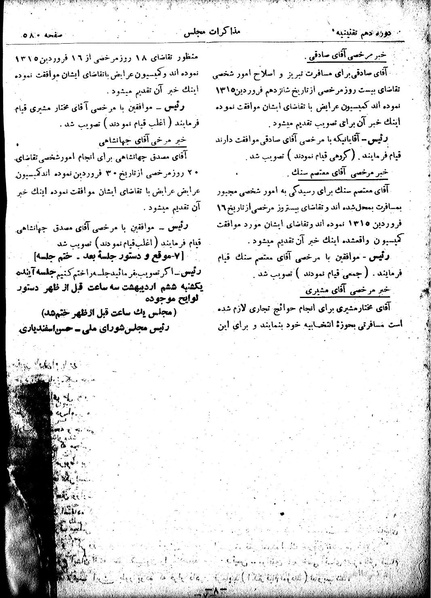 دوره دهم تقنینیه
مذاکرات مجلس
صفحه ۵۸۰
خبر مرخصی آقای صادقی
آقای صادقی برای مسافرت تبریز و اصلاح امور شخصی
تقاضای بیست روز مرخصی از تاریخ شانزدهم فروردین ۱۳۱۵
نموده اند کمیسیون عرایض با تقاضای ایشان موافقت نموده
اینك خبر آن برای تصویب تقدیم میشود.
رئیس ـ آقایانیکه با مرخصی آقای صادقی موافقت دارند
قیام فرمایند. (گروهی قیام نمودند) تصویب شد.
خبر مرخصی آقای معتصم سنك
آقای معتصم سنك برای رسیدگی به امور شخصی مجبور
بمسافرت بمحل شده اند و تقاضای بیست روز مرخصی از تاریخ ۱۶
فروردین ۱۳۱۵ نموده اند و تقاضای ایشان مورد موافقت
کمیسیون واقعشده اینك خبر آن تقدیم میشود.
رئیس ـ موافقین با مرخصی آقای معتصم سنك قیام
فرمایند. (جمعی قیام نمودند) تصویب شد.
خبر مرخصی آقای مشیری
آقای مختار مشیری برای انجام حوائج تجاری لازم شده
است مسافرتی بحوزۀ انتخابیه خود بنمایند و برای این
منظور تقاضای ۱۸ روز مرخصی از ۱۶ فروردین ۱۳۱۵
نموده اند و کمیسیون عرایض با تقاضای ایشان موافقت نموده
اینك خبر آن تقدیم میشود.
رئیس ـ موافقین با مرخصی آقای مختار مشیری قیام
فرمایند (اغلب قیام نمودند) تصویب شد.
خبر مرخی آقای جهانشاهی
آقای مصدق جهانشاهی برای انجام امور شخصی تقاضای
۲۰ روز مرخصی از تاریخ ۳۰ فروردین نموده اند کمیسیون
عرایض با تقاضای ایشان موافقت نموده اینك خبر
آن تقدیم میشود.
رئیس ـ موافقین با مرخصی آقای مصدق جهانشاهی
قیام فرمایند (اغلب قیام نمودند) تصویب شد
[۷ـ موقع و دستور جلسۀ بعد ـ ختم جلسه]
رئیس ـ اگر تصویب میفرمائید جلسه را ختم کنیم جلسه آینده
یکشنبه ششم اردیبهشت سه ساعت قبل از ظهر دستور
لوایح موجوده
(مجلس یك ساعت قبل از ظهر ختم شد)
رئیس مجلس شورای ملی ـ حسن اسفندیاری
ـ۸ـ